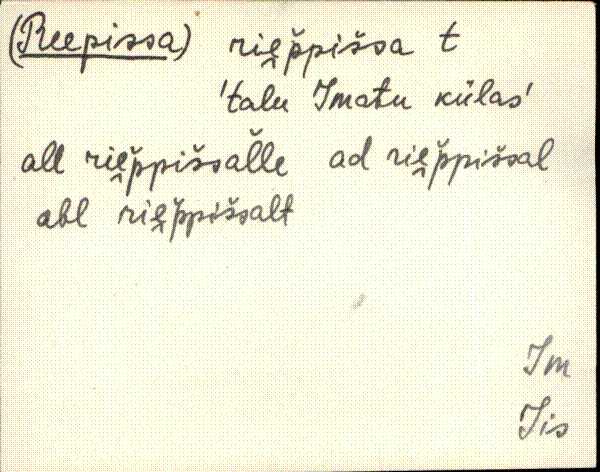 (Reepissa) rie̯p̌pišsa t
'talu Imatu külas'
all rie̯p̌pišsalle ad rie̯p̌pišsal
abl rie̯p̌pišsalt
Im
Jis